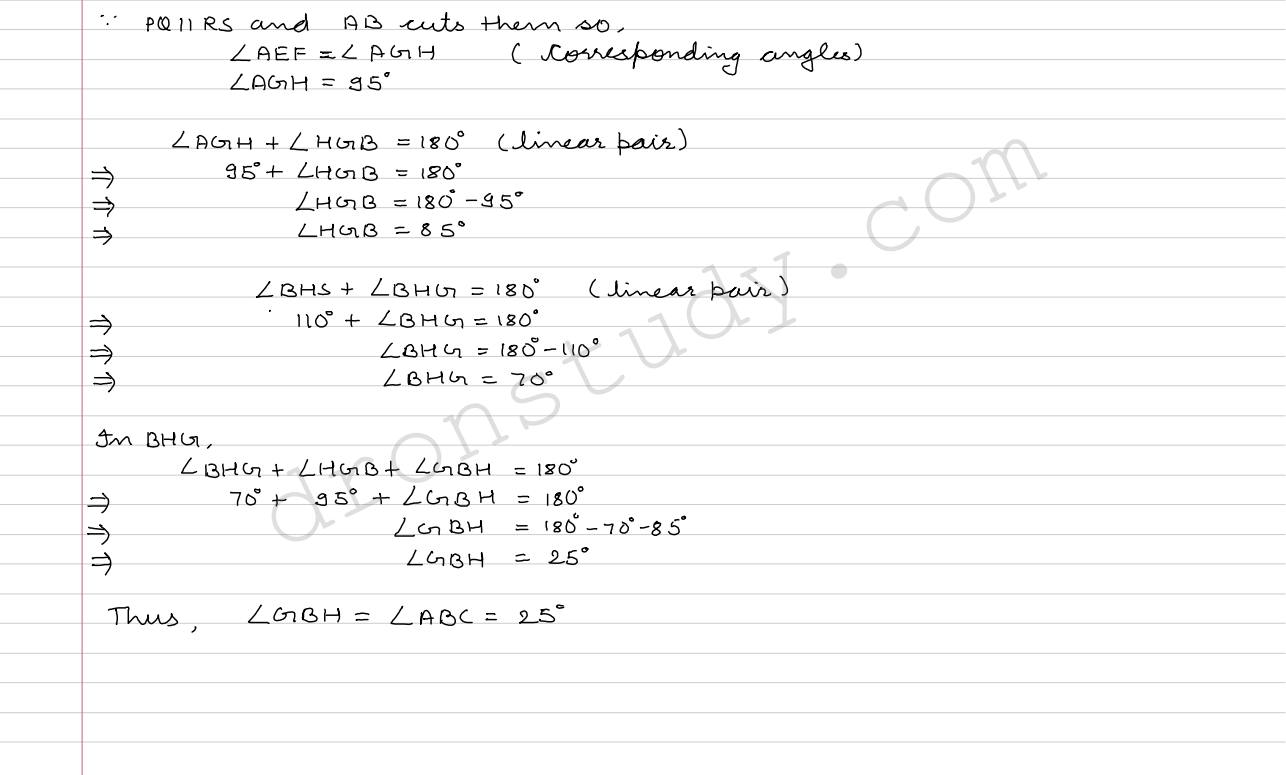 ∵ PQ || RS and AB cuts them so,
∠AEF = ∠AGH (Corresponding angles)
∠AGH = 95°
∠AGH + ∠HGB = 180° (linear pair)
⇒ 95° + ∠HGB = 180°
⇒ ∠HGB = 180° - 95°
⇒ ∠HGB = 85°
∠BHS + ∠BHG = 180° (linear pair)
⇒ 110° + ∠BHG = 180°
⇒ ∠BHG = 180° - 110°
⇒ ∠BHG = 70°
In BHG,
∠BHG + ∠HGB + ∠GBH = 180°
⇒ 70° + 95° + ∠GBH = 180°
⇒ ∠GBH = 180° - 70° - 85°
⇒ ∠GBH = 25°
Thus, ∠GBH = ∠ABC = 25°
dronstudy.com